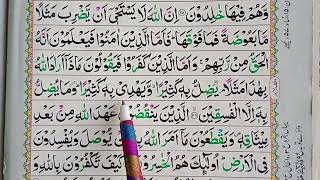 وَّهُمْ فِيْهَا خٰلِدُوْنَ ۝ اِنَّ اللّٰهَ لَا يَسْتَحْيٖۤ اَنْ يَّضْرِبَ مَثَلًا
مَّا بَعُوْضَةً فَمَا فَوْقَهَا ؕ فَاَمَّا الَّذِيْنَ اٰمَنُوْا فَيَعْلَمُوْنَ اَنَّهُ
الْحَقُّ مِنْ رَّبِّهِمْ ۚ وَاَمَّا الَّذِيْنَ كَفَرُوْا فَيَقُوْلُوْنَ مَاذَاۤ اَرَادَ اللّٰهُ
بِهٰذَا مَثَلًا ۘ يُضِلُّ بِهٖ كَثِيْرًا وَّيَهْدِيْ بِهٖ كَثِيْرًا ؕ وَمَا يُضِلُّ
بِهٖۤ اِلَّا الْفٰسِقِيْنَ ۝ الَّذِيْنَ يَنْقُضُوْنَ عَهْدَ اللّٰهِ مِنْۢ بَعْدِ
مِيْثَاقِهٖ ۪ وَيَقْطَعُوْنَ مَاۤ اَمَرَ اللّٰهُ بِهٖۤ اَنْ يُّوْصَلَ وَيُفْسِدُوْنَ
فِي الْاَرْضِ ؕ اُولٰٓئِكَ هُمُ الْخٰسِرُوْنَ ۝ كَيْفَ تَكْفُرُوْنَ بِاللّٰهِ وَ